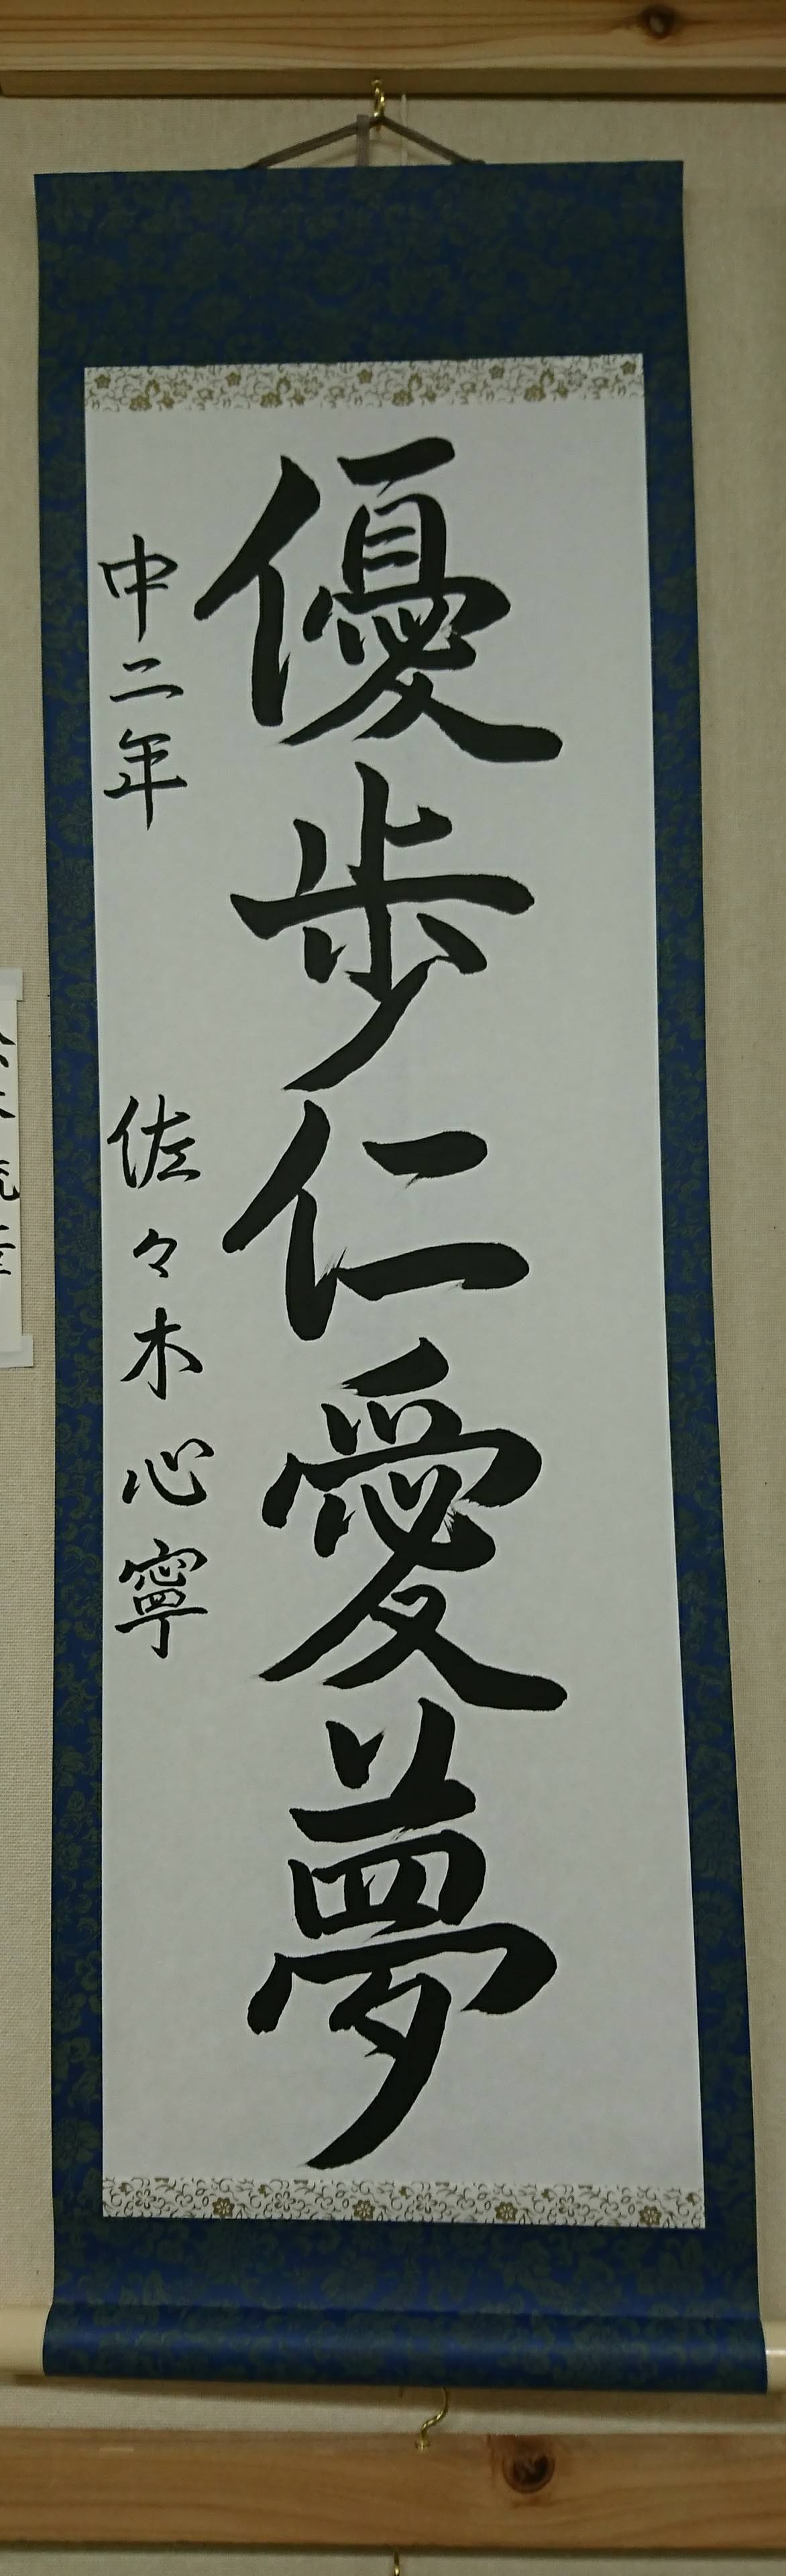 優歩仁愛夢
中二年 佐々木心寧